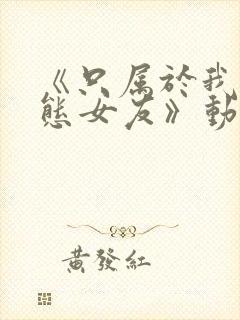 《只属於我
態女友》動
黃發紅